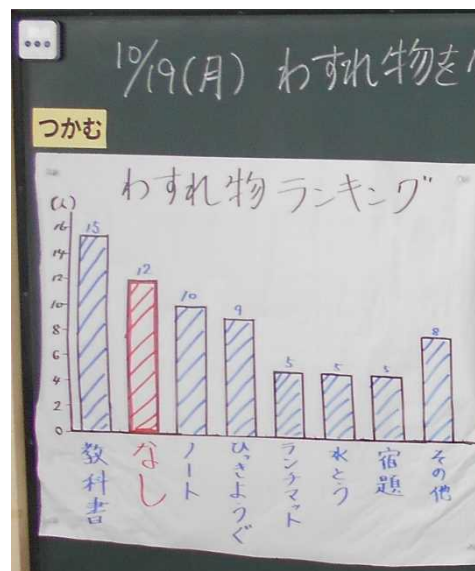 10/19(月) わすれ物を
つかむ
わすれ物ランキング
(人)
16
14
12
10
8
6
4
2
0
15
12
10
9
5
5
5
8
教科書
なし
ノート
ひっきようぐ
ランチマット
水とう
宿題
その他